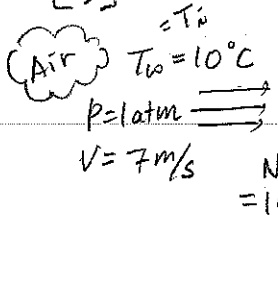 = Tin
Air T∞ = 10°C
P=1atm
V= 7m/s
N
=1